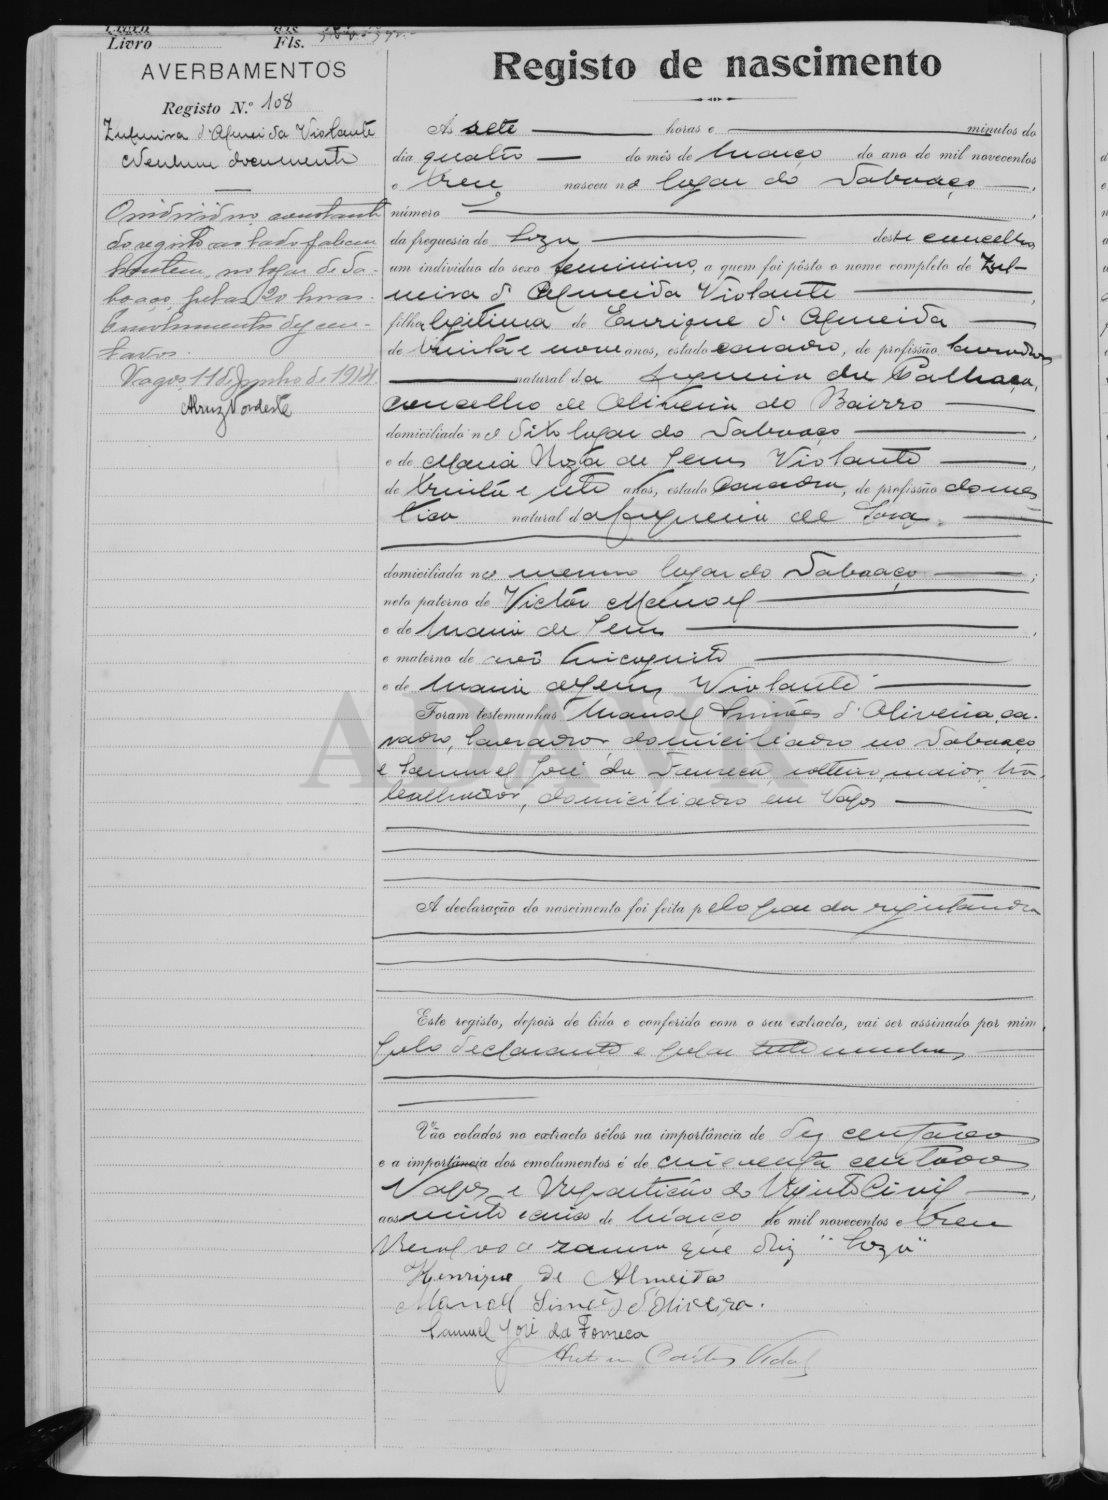 Livro Fls.
AVERBAMENTOS
Registo N.º 108
Zulmira d'Almeida Violante
Nenhum documento
O individuo constante
do registo ao lado faleceu
hontem, no logar de Sa-
boaço, pelas 20 horas.
Emolumentos dez cen-
tavos.
Vagos 11 de Junho de 1914.
Registo de nascimento
Ás sete horas e minutos do
dia quatro do mês de Março do ano de mil novecentos
e treze nasceu no logar do Saboaço,
número
da freguesia de Soza deste concelho,
um individuo do sexo feminino, a quem foi pôsto o nome completo de Zul-
meira d'Almeida Violante,
filha legitima de Enrique d'Almeida
de trinta e nove anos, estado casado, de profissão lavrador
natural da freguesia da Palhaça,
concelho de Oliveira do Bairro
domiciliado no dito logar do Saboaço,
e de Maria Roza de Jesus Violante,
de trinta e sete anos, estado casada, de profissão domes
tica natural da freguesia de Soza.
domiciliada no mesmo logar do Saboaço;
neto paterno de Victór Manoel
e de Maria de Jesus,
e materno de avô incognito
e de Maria de Jesus Violante
Foram testemunhas Manoel Simões d'Oliveira, ca-
sado, lavrador domiciliado no Saboaço
e Samuel José da Fonseca, solteiro, maior, tra-
balhador, domiciliado em Vagos
A declaração do nascimento foi feita pelo pae da registanda
Este registo, depois de lido e conferido com o seu extracto, vai ser assinado por mim,
pelo declarante e pelas testemunhas,
Vão colados no extracto sêlos na importância de dez centavos
e a importância dos emolumentos é de cincoenta centavos
Vagos e Repartição do Registo Civil,
aos vinte e cinco de Março de mil novecentos e treze
Resalvo a rasura que diz "Soza"
Henrique de Almeida
Manoel Simões d'Oliveira.
Samuel José da Fonseca
Vidal
ADAVR